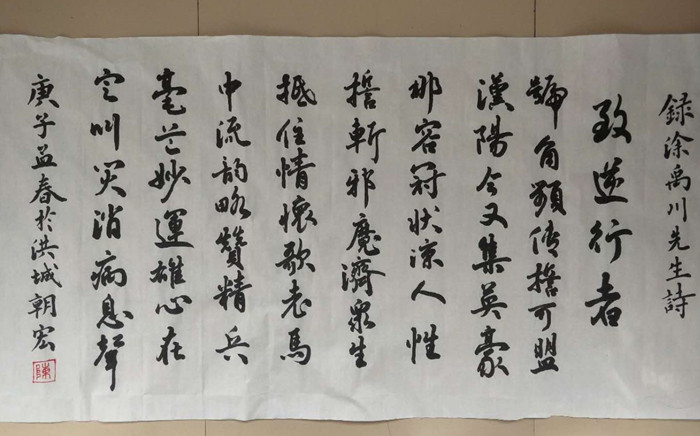 録涂禹川先生詩
致逆行者
號角頻传擔可盟
漢陽今又集英豪
那容冠状凉人性
誓斬邪魔濟衆生
抵住情懷歌老馬
中流韵略贊精兵
毫芒妙運雄心在
定叫炎消病息聲
庚子孟春於洪城朝宏
陳